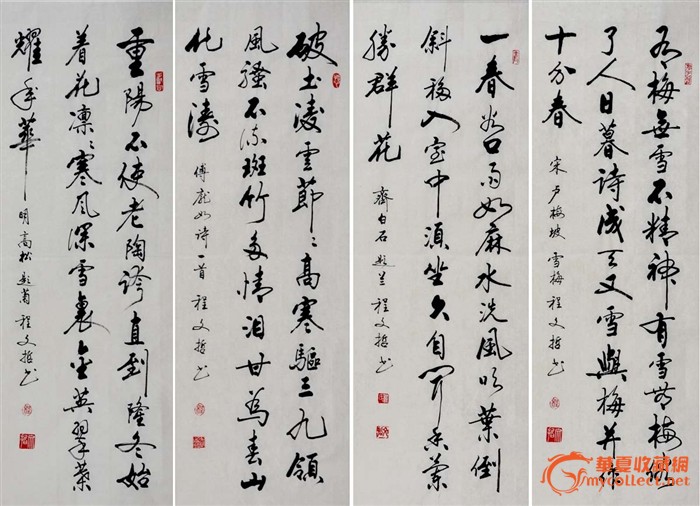 有梅無雪不精神有雪無梅俗
了人日暮詩成天又雪與梅并作
十分春 宋卢梅坡 雪梅 程文哲书
一春谷口雨如麻水洗風吹葉倒
斜移入室中須坐久自闻香氣
勝群花 齊白石 题兰 程文哲书
破土淩雲節〻高寒驅三九領
風騷不流斑竹多情泪甘為春山
化雪濤 傅庞如詩一首 程文哲书
重陽不使老陶誇直到隆冬始
着花凛〻寒風深雪裏金英翠葉
耀年華 明高松 题菊 程文哲书
華夏收藏網
mycollect.net